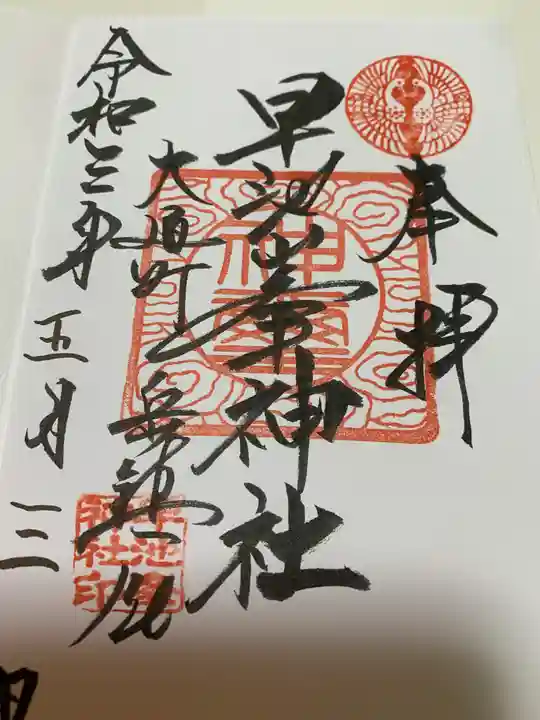 奉拝
早池峯神社
大迫町岳鎮座
令和三年五月三
神璽
早池峯神社印